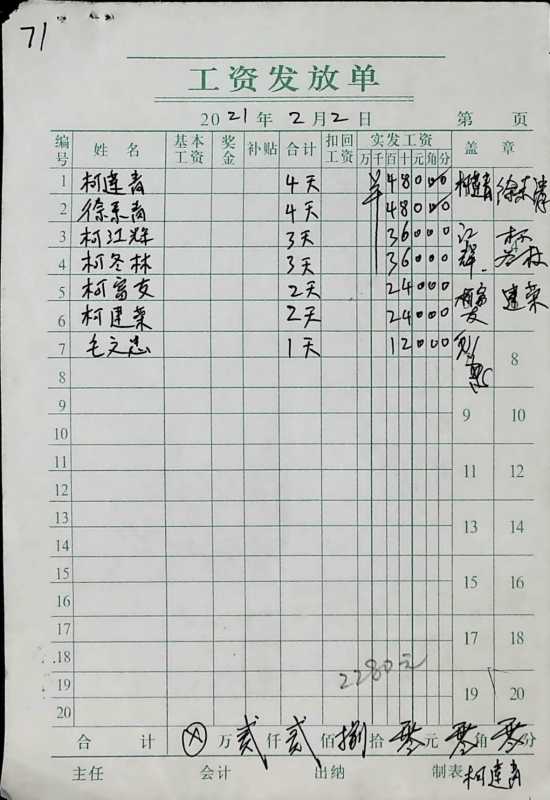 71
工资发放单
2021年2月2日 第 页
编号 姓名 基本工资 奖金 补贴 合计 扣回工资 实发工资 万千百十元角分 盖章
1 柯建青 4天 ¥48000 柯建青
2 4天 48000
3 柯江辉 3天 36000 江辉
4 柯冬林 3天 36000
5 柯富女 2天 24000 柯富女
6 柯建荣 2天 24000 建荣
7 毛文忠 1天 12000 8
8
9 9 10
10
11 11 12
12
13 13 14
14
15 15 16
16
17 17 18
18
19 2280元
20 19 20
合计 ⊗万贰仟贰佰捌拾零元零角零分
主任 会计 出纳 制表 柯建青